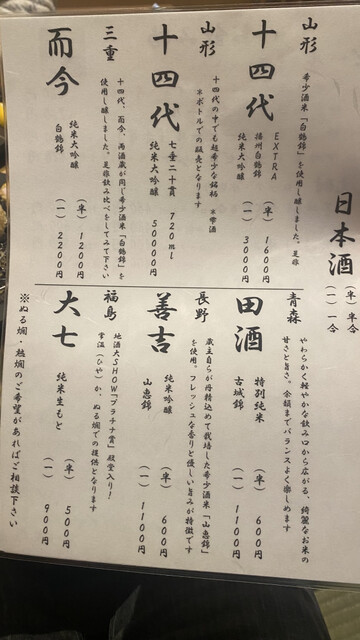 日本酒
(半) 半合
(一) 一合
山形
希少酒米「白鶴錦」を使用し醸しました。是非
十四代
EXTRA
播州白鶴錦
純米大吟醸
(半) 1600円
(一) 3000円
山形
十四代の中でも超希少な銘柄 ※雫酒
※ボトルでの販売となります
十四代
七垂二十貫 720ml
純米大吟醸
50000円
三重
十四代、而今、両酒蔵が同じ希少酒米「白鶴錦」を
使用し醸しました。是非飲み比べをしてみて下さい
而今
純米大吟醸
白鶴錦
(半) 1200円
(一) 2200円
青森
やわらかく軽やかな飲み口から広がる、綺麗なお米の
甘さと旨さ。余韻までバランスよく楽しめます
田酒
特別純米
古城錦
(半) 600円
(一) 1100円
長野
蔵主自らが丹精込めて栽培した希少酒米「山恵錦」
を使用。フレッシュな香りと優しい旨みが特徴です
善吉
純米吟醸
山恵錦
(半) 600円
(一) 1100円
福島
地酒大SHOW「プラチナ賞」殿堂入り!
常温(ひや)か、ぬる燗での提供となります
大七
純米生もと
(半) 500円
(一) 900円
※ぬる燗・熱燗のご希望があればご相談下さい